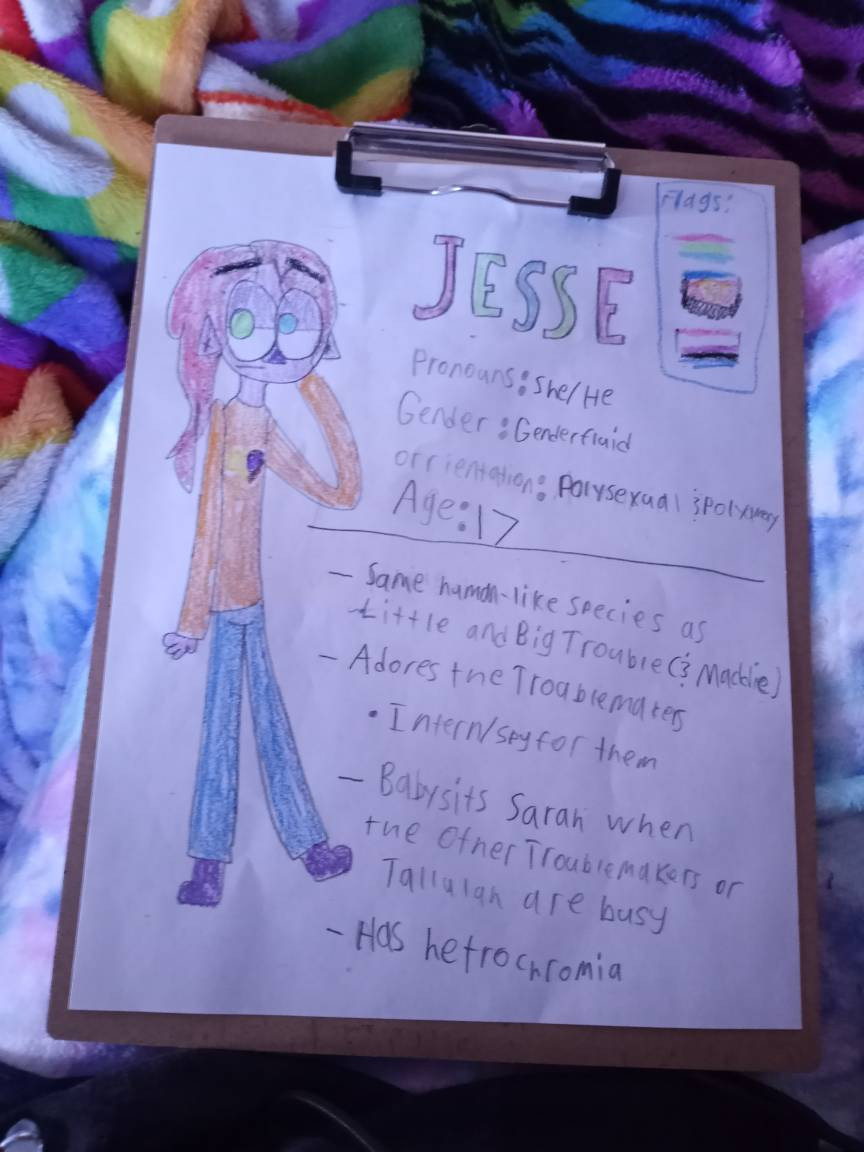 Flags:
JESSE
Pronouns: She/He
Gender: Genderfluid
orrientation: Polysexual &
Age: 17
- Same human-like species as
Little and Big Trouble (& Maddie)
- Adores the Troublemakers
• Intern/spy for them
- Babysits Sarah when
the other Troublemakers or
Tallulah are busy
- Has hetrochromia